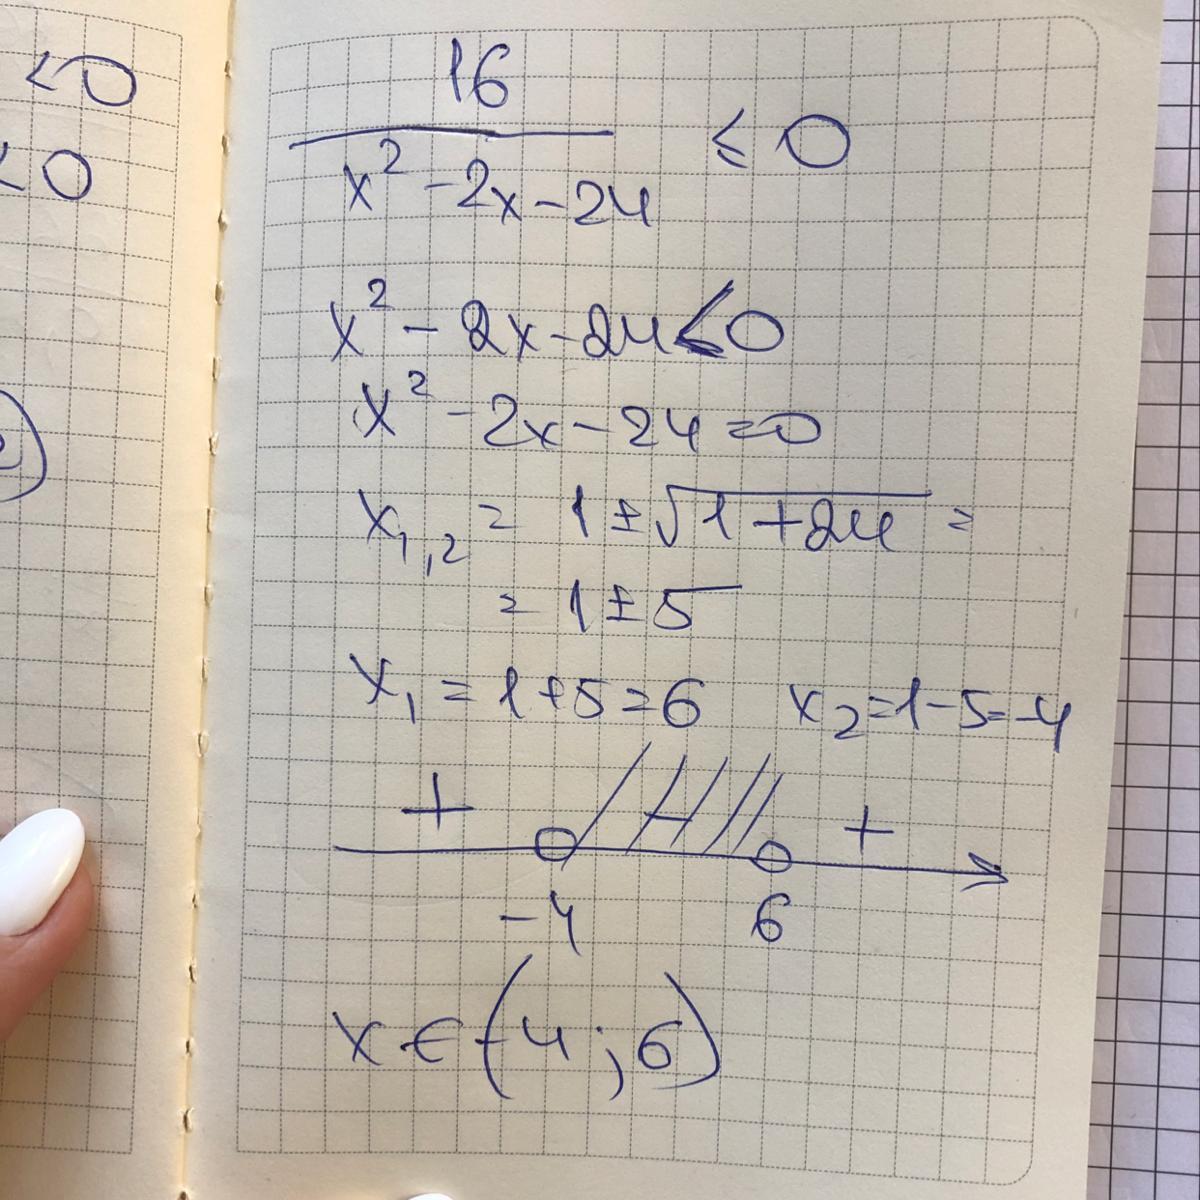 <0
<0
16
x² - 2x - 24 ≤ 0
x² - 2x - 24 < 0
x² - 2x - 24 = 0
x₁,₂ = 1 ± √1 + 24 =
= 1 ± 5
x₁ = 1 + 5 = 6 x₂ = 1 - 5 = -4
+ +
-4 6
x ∈ (-4 ; 6)